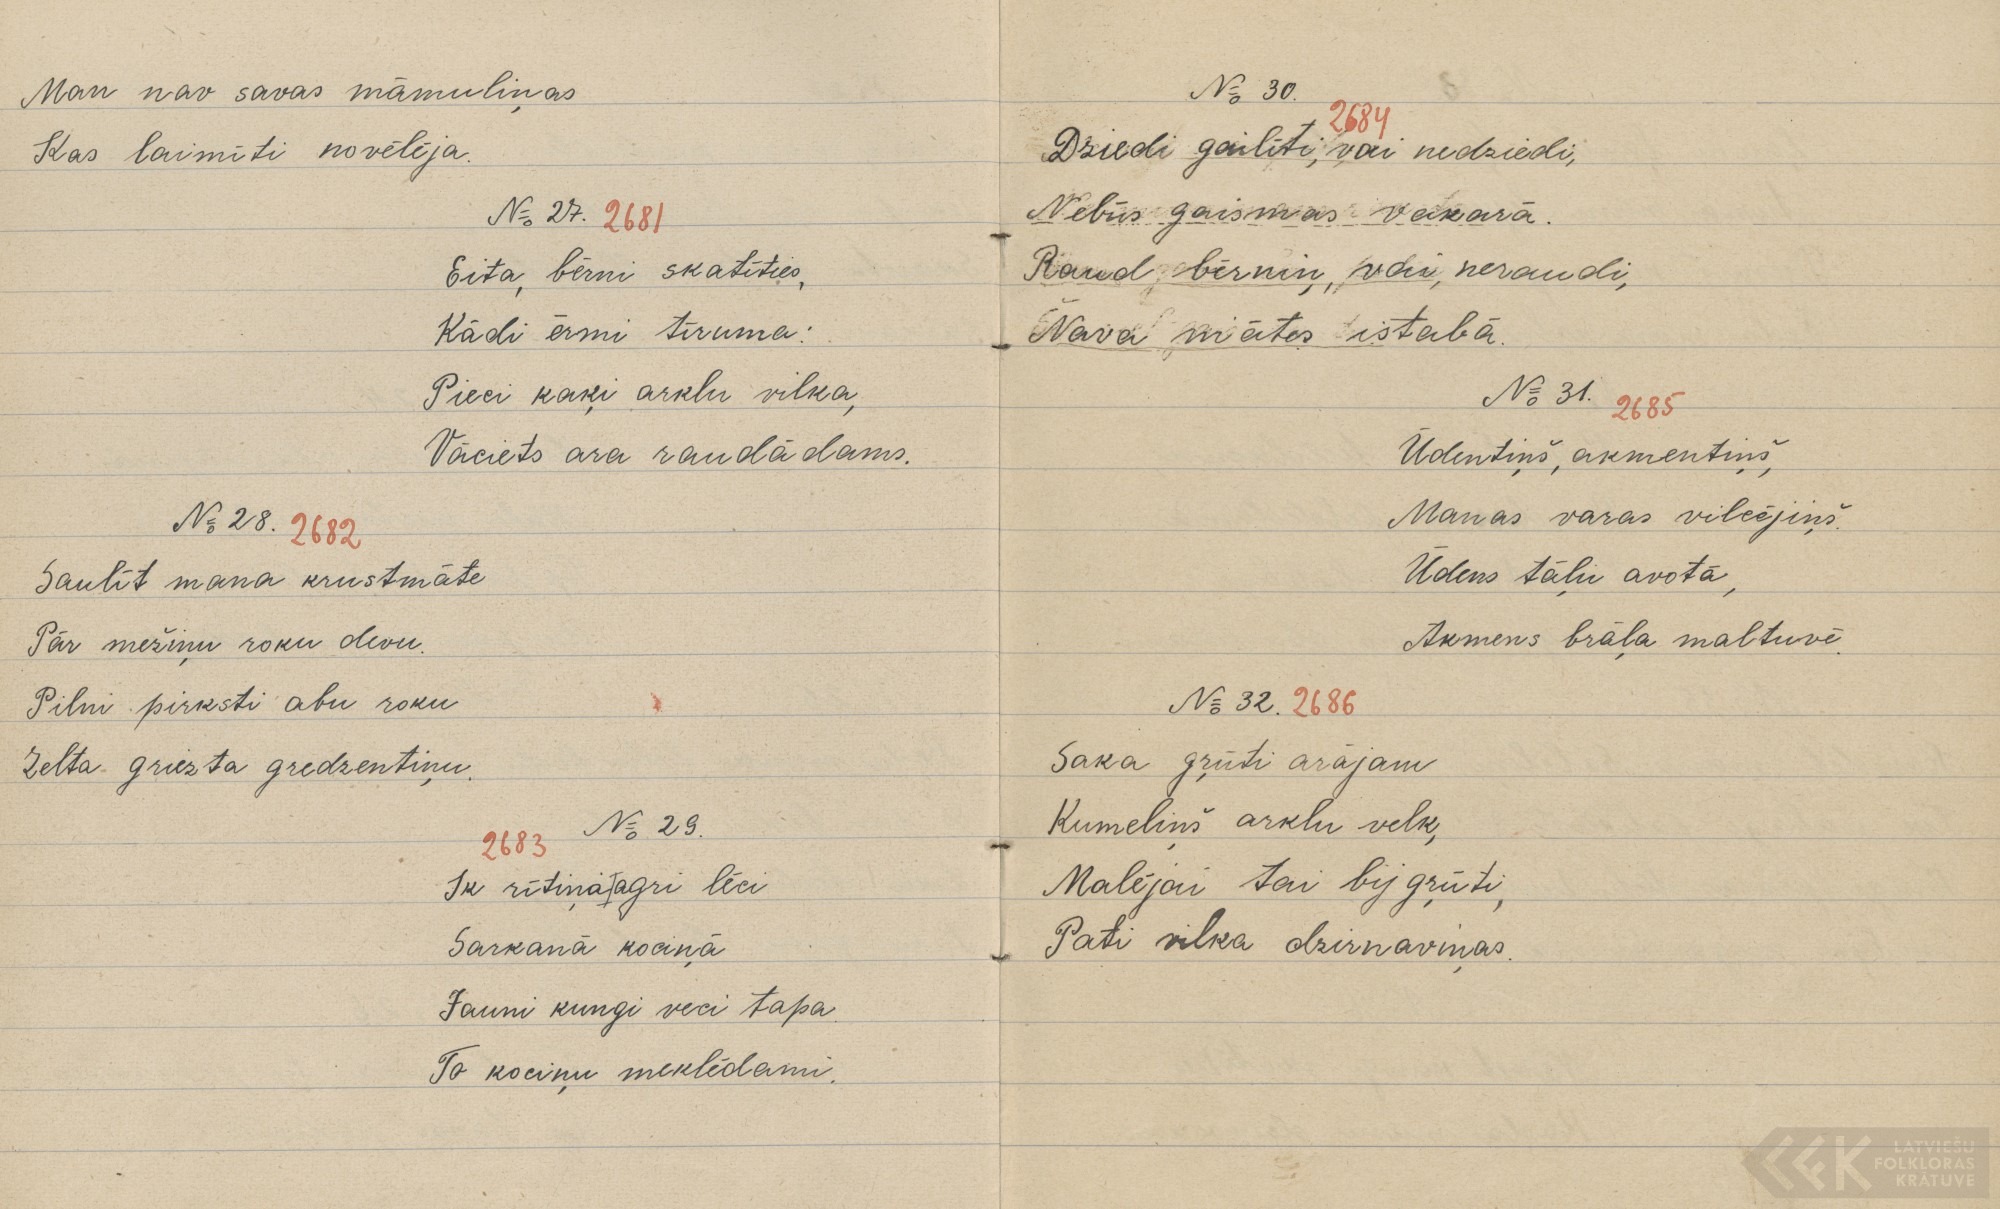 Man nav savas māmuliņas
Kas laimīti novēlēja.
№ 27. 2681
Eita, bērni skatīties,
Kādi ērmi tīruma:
Pieci kaķi arklu vilka,
Vāciets ara raudādams.
№ 28. 2682
Saulīt mana krustmāte
Pār mežiņu roku devu.
Pilni pirksti abu roku
Zelta griezta gredzentiņu.
2683 № 29.
Ik rītiņā agri lēci
Sarkanā kociņā
Jauni kungi veci tapa
To kociņu meklēdami.
№ 30.
2684
Dziedi gailīti, vai nedziedi,
Nebūs gaismas vakarā.
Raud, bērniņ, vai, neraudi,
Nava mātes istabā.
№ 31. 2685
Ūdentiņš, akmentiņš,
Manas varas vilcējiņš.
Ūdens tāļu avotā,
Akmens brāļa maltuvē.
№ 32. 2686
Saka gŗūti arājam
Kumeliņš arklu velk,
Malējai tai bij gŗūti,
Pati vilka dzirnaviņas.
LATVIEŠU
FOLKLORAS
KRATUVE